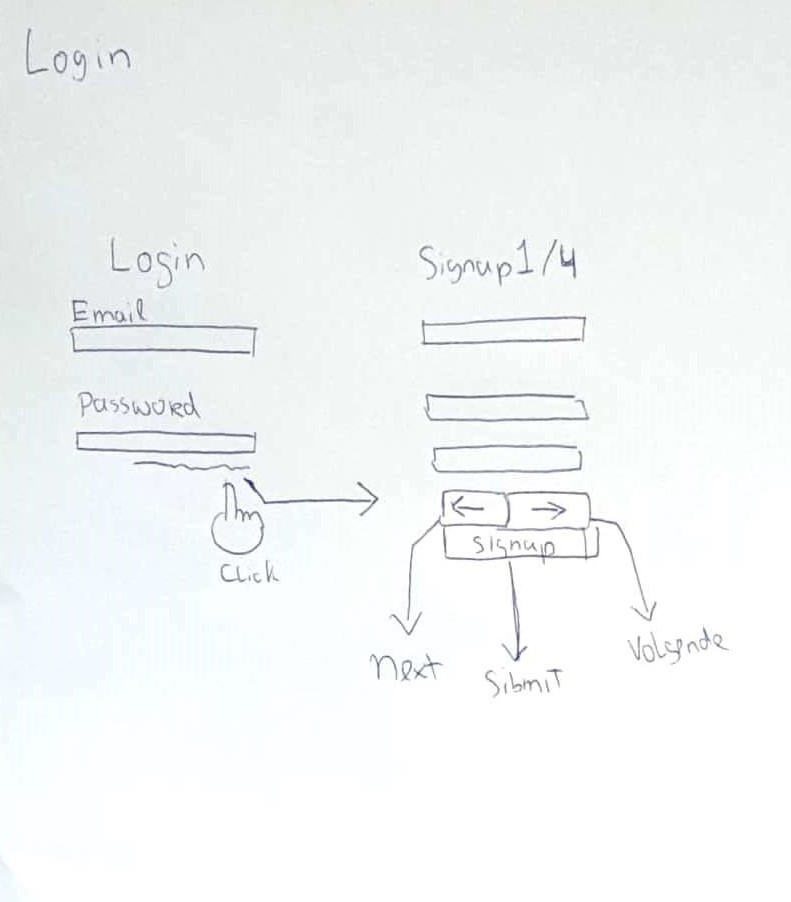 Login
Login
Email
Password
Click
Signup 1/4
← →
signup
next
Sibmit
Volgende